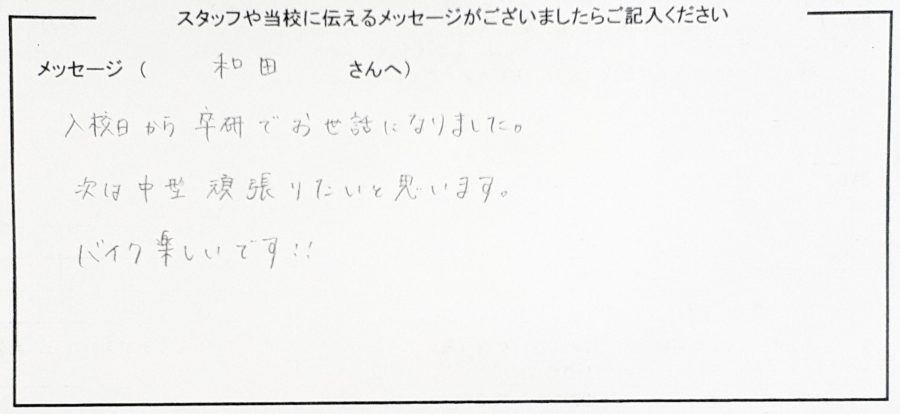 スタッフや当校に伝えるメッセージがございましたらご記入ください
メッセージ （ 和田 さんへ）
入校日から卒研でお世話になりました。
次は中型頑張りたいと思います。
バイク楽しいです!!